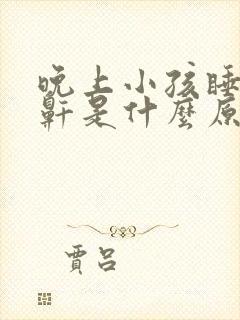 晚上小孩睡
鼾是什麼原
賈呂